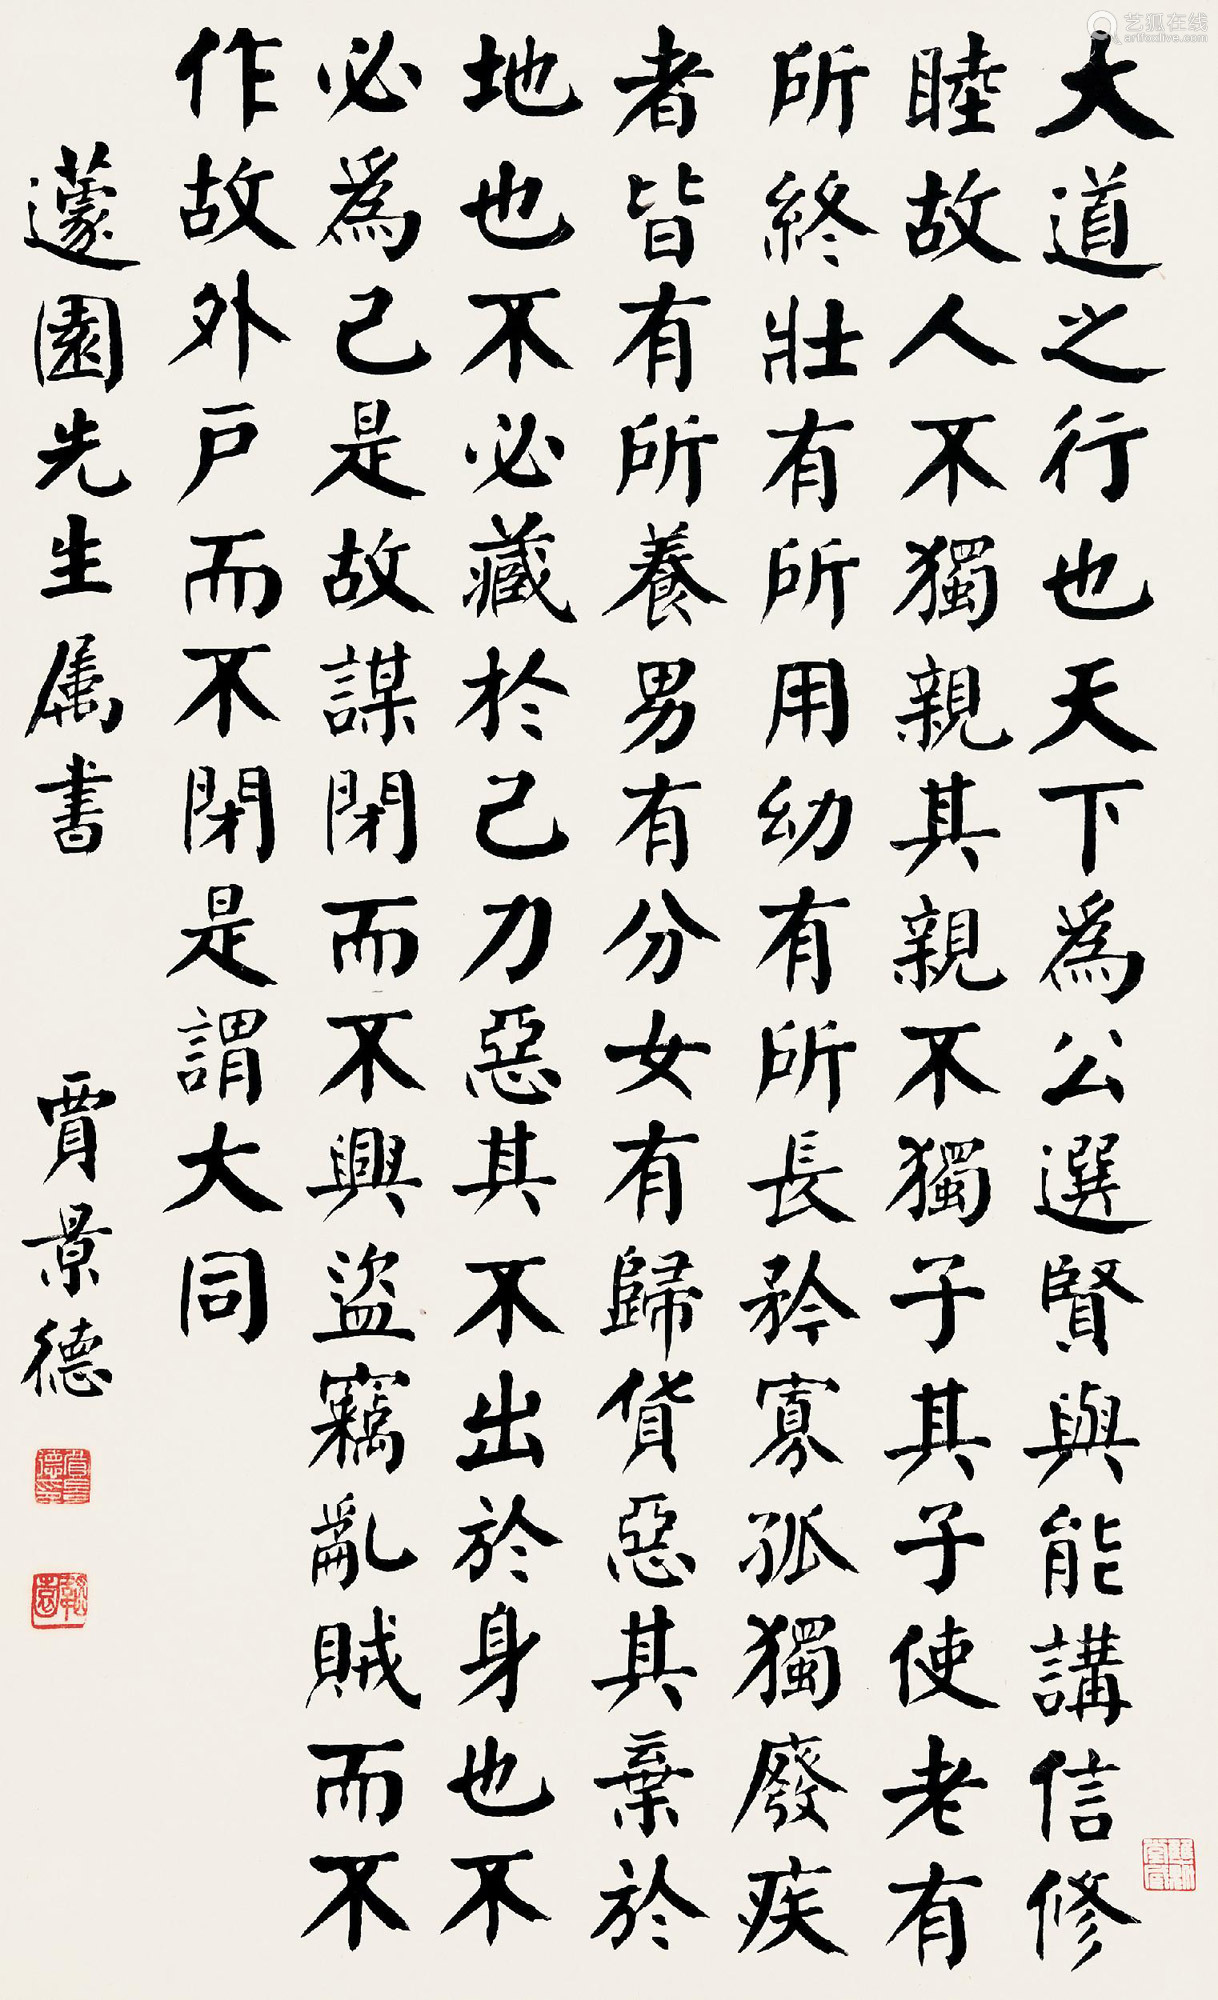 大道之行也天下為公選賢與能講信修
睦故人不獨親其親不獨子其子使老有
所終壯有所用幼有所長矜寡孤獨廢疾
者皆有所養男有分女有歸貨惡其棄於
地也不必藏於己力惡其不出於身也不
必為己是故謀閉而不興盜竊亂賊而不
作故外戶而不閉是謂大同
蘧園先生属書
賈景德
艺狐在线
artfoxlive.com